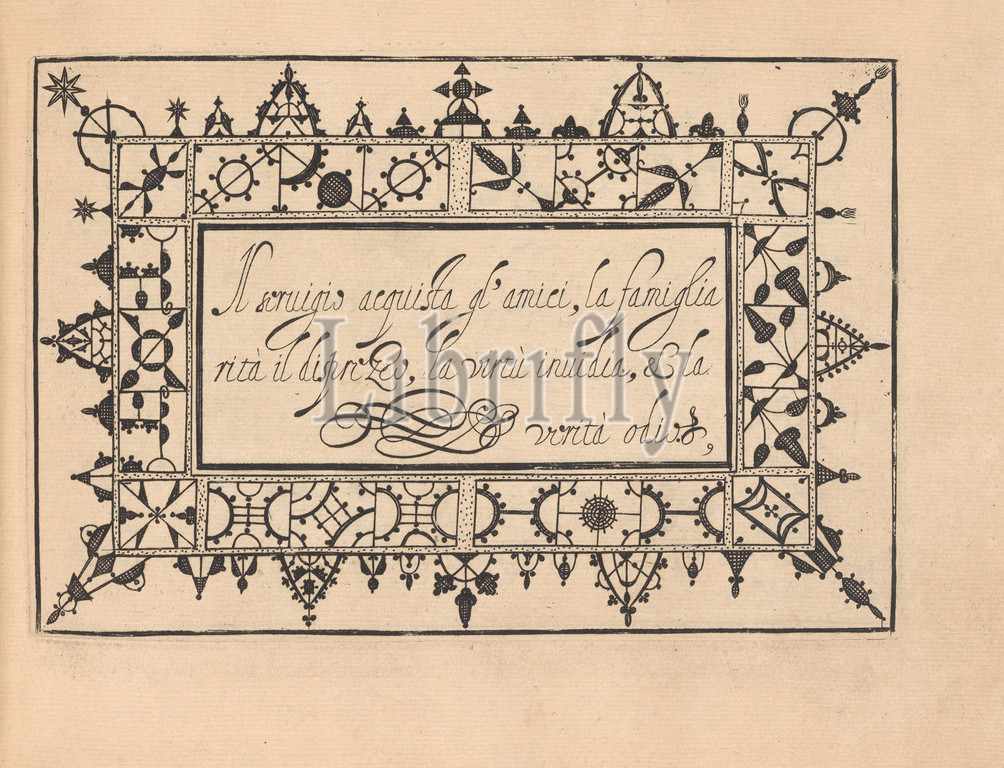 Il seruigio acquista gl' amici, la famiglia
rità il disprezzo, la virtù inuidia, & la
verità odio,
Librifly